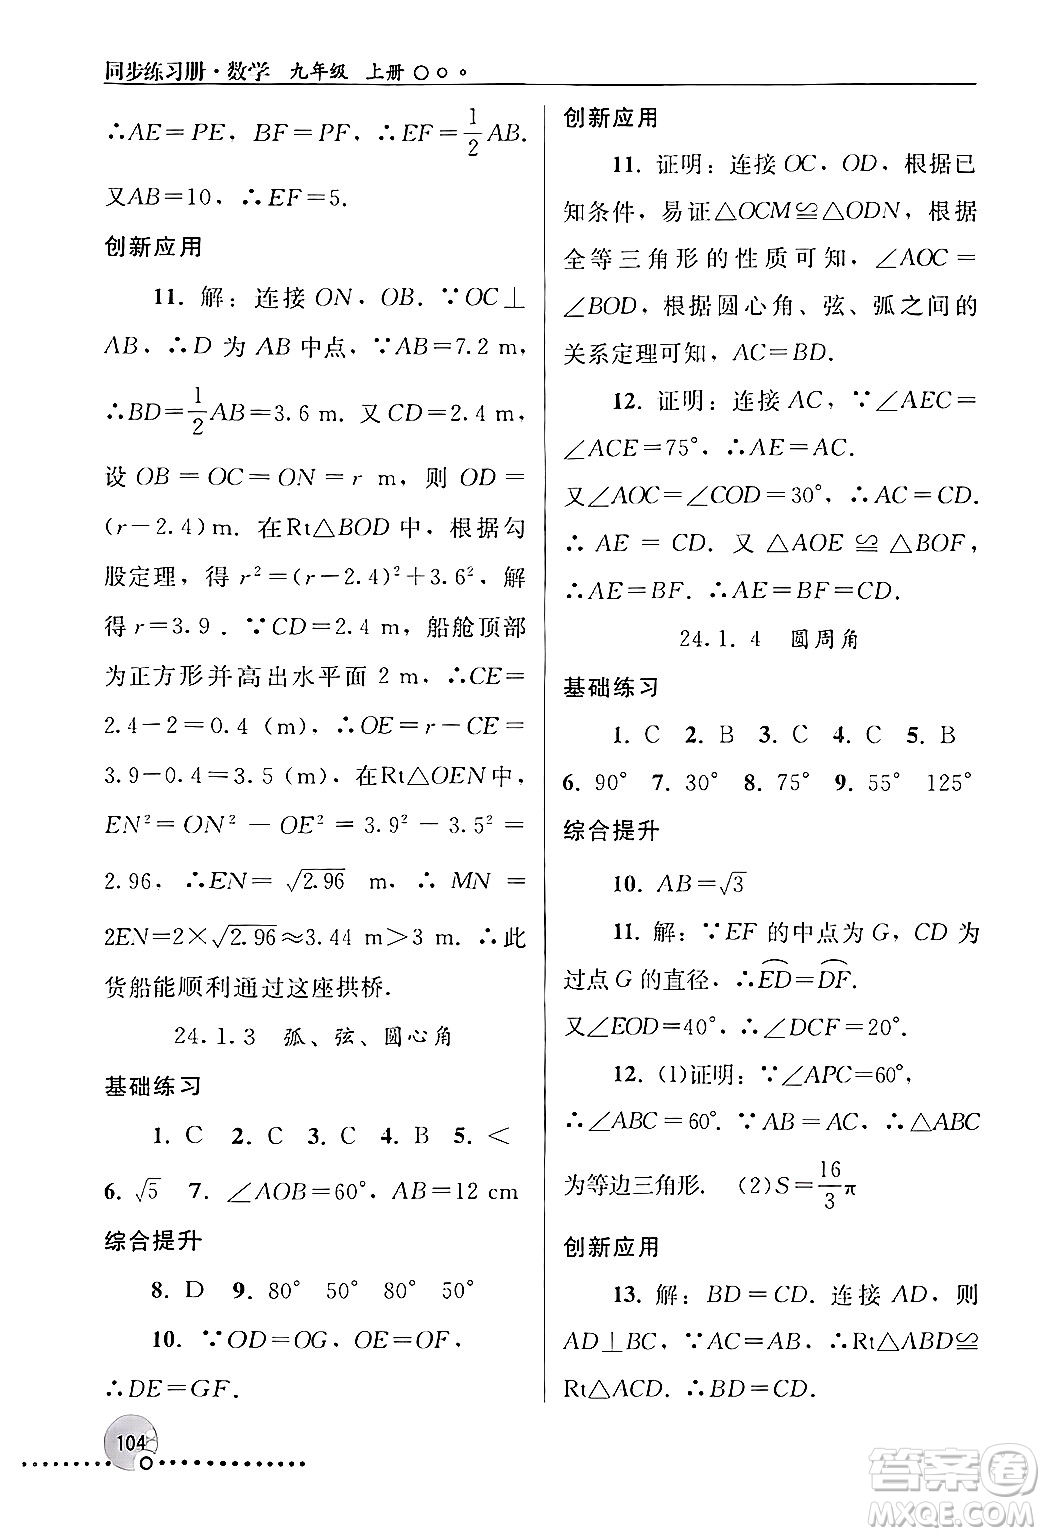 同步练习册·数学 九年级 上册
∴AE=PE，BF=PF，∴EF=1/2AB.
又AB=10，∴EF=5.
创新应用
11. 解：连接ON，OB. ∵OC⊥
AB，∴D 为 AB 中点，∵AB=7.2 m，
∴BD=1/2AB=3.6 m. 又CD=2.4 m，
设 OB=OC=ON=r m，则 OD=
(r-2.4)m. 在Rt△BOD中，根据勾
股定理，得 r²=(r-2.4)²+3.6²，解
得 r=3.9 . ∵CD=2.4 m，船舱顶部
为正方形并高出水平面 2 m，∴CE=
2.4-2=0.4（m），∴OE=r-CE=
3.9-0.4=3.5（m），在Rt△OEN中，
EN²=ON²-OE²=3.9²-3.5²=
2.96，∴EN=√2.96 m，∴ MN =
2EN=2×√2.96≈3.44 m>3 m. ∴此
货船能顺利通过这座拱桥.
24.1.3 弧、弦、圆心角
基础练习
1. C 2. C 3. C 4. B 5. <
6. √5 7. ∠AOB=60°，AB=12 cm
综合提升
8. D 9. 80° 50° 80° 50°
10. ∵OD=OG，OE=OF，
∴DE=GF.
104
创新应用
11. 证明：连接 OC，OD，根据已
知条件，易证△OCM≌△ODN，根据
全等三角形的性质可知，∠AOC=
∠BOD，根据圆心角、弦、弧之间的
关系定理可知，AC=BD.
12. 证明：连接 AC，∵∠AEC=
∠ACE=75°，∴AE=AC.
又∠AOC=∠COD=30°，∴AC=CD.
∴ AE = CD. 又 △AOE ≌ △BOF，
∴AE=BF. ∴AE=BF=CD.
24.1.4 圆周角
基础练习
1. C 2. B 3. C 4. C 5. B
6. 90° 7. 30° 8. 75° 9. 55° 125°
综合提升
10. AB=√3
11. 解：∵EF 的中点为 G，CD 为
过点 G 的直径，∴⌒ED=⌒DF.
又∠EOD=40°，∴∠DCF=20°.
12. (1)证明：∵∠APC=60°，
∴∠ABC=60°. ∵AB=AC，∴△ABC
为等边三角形. (2)S=16/3π
创新应用
13. 解：BD=CD. 连接 AD，则
AD⊥BC，∵AC=AB，∴Rt△ABD≌
Rt△ACD. ∴BD=CD.
答案圈
MXQE.COM